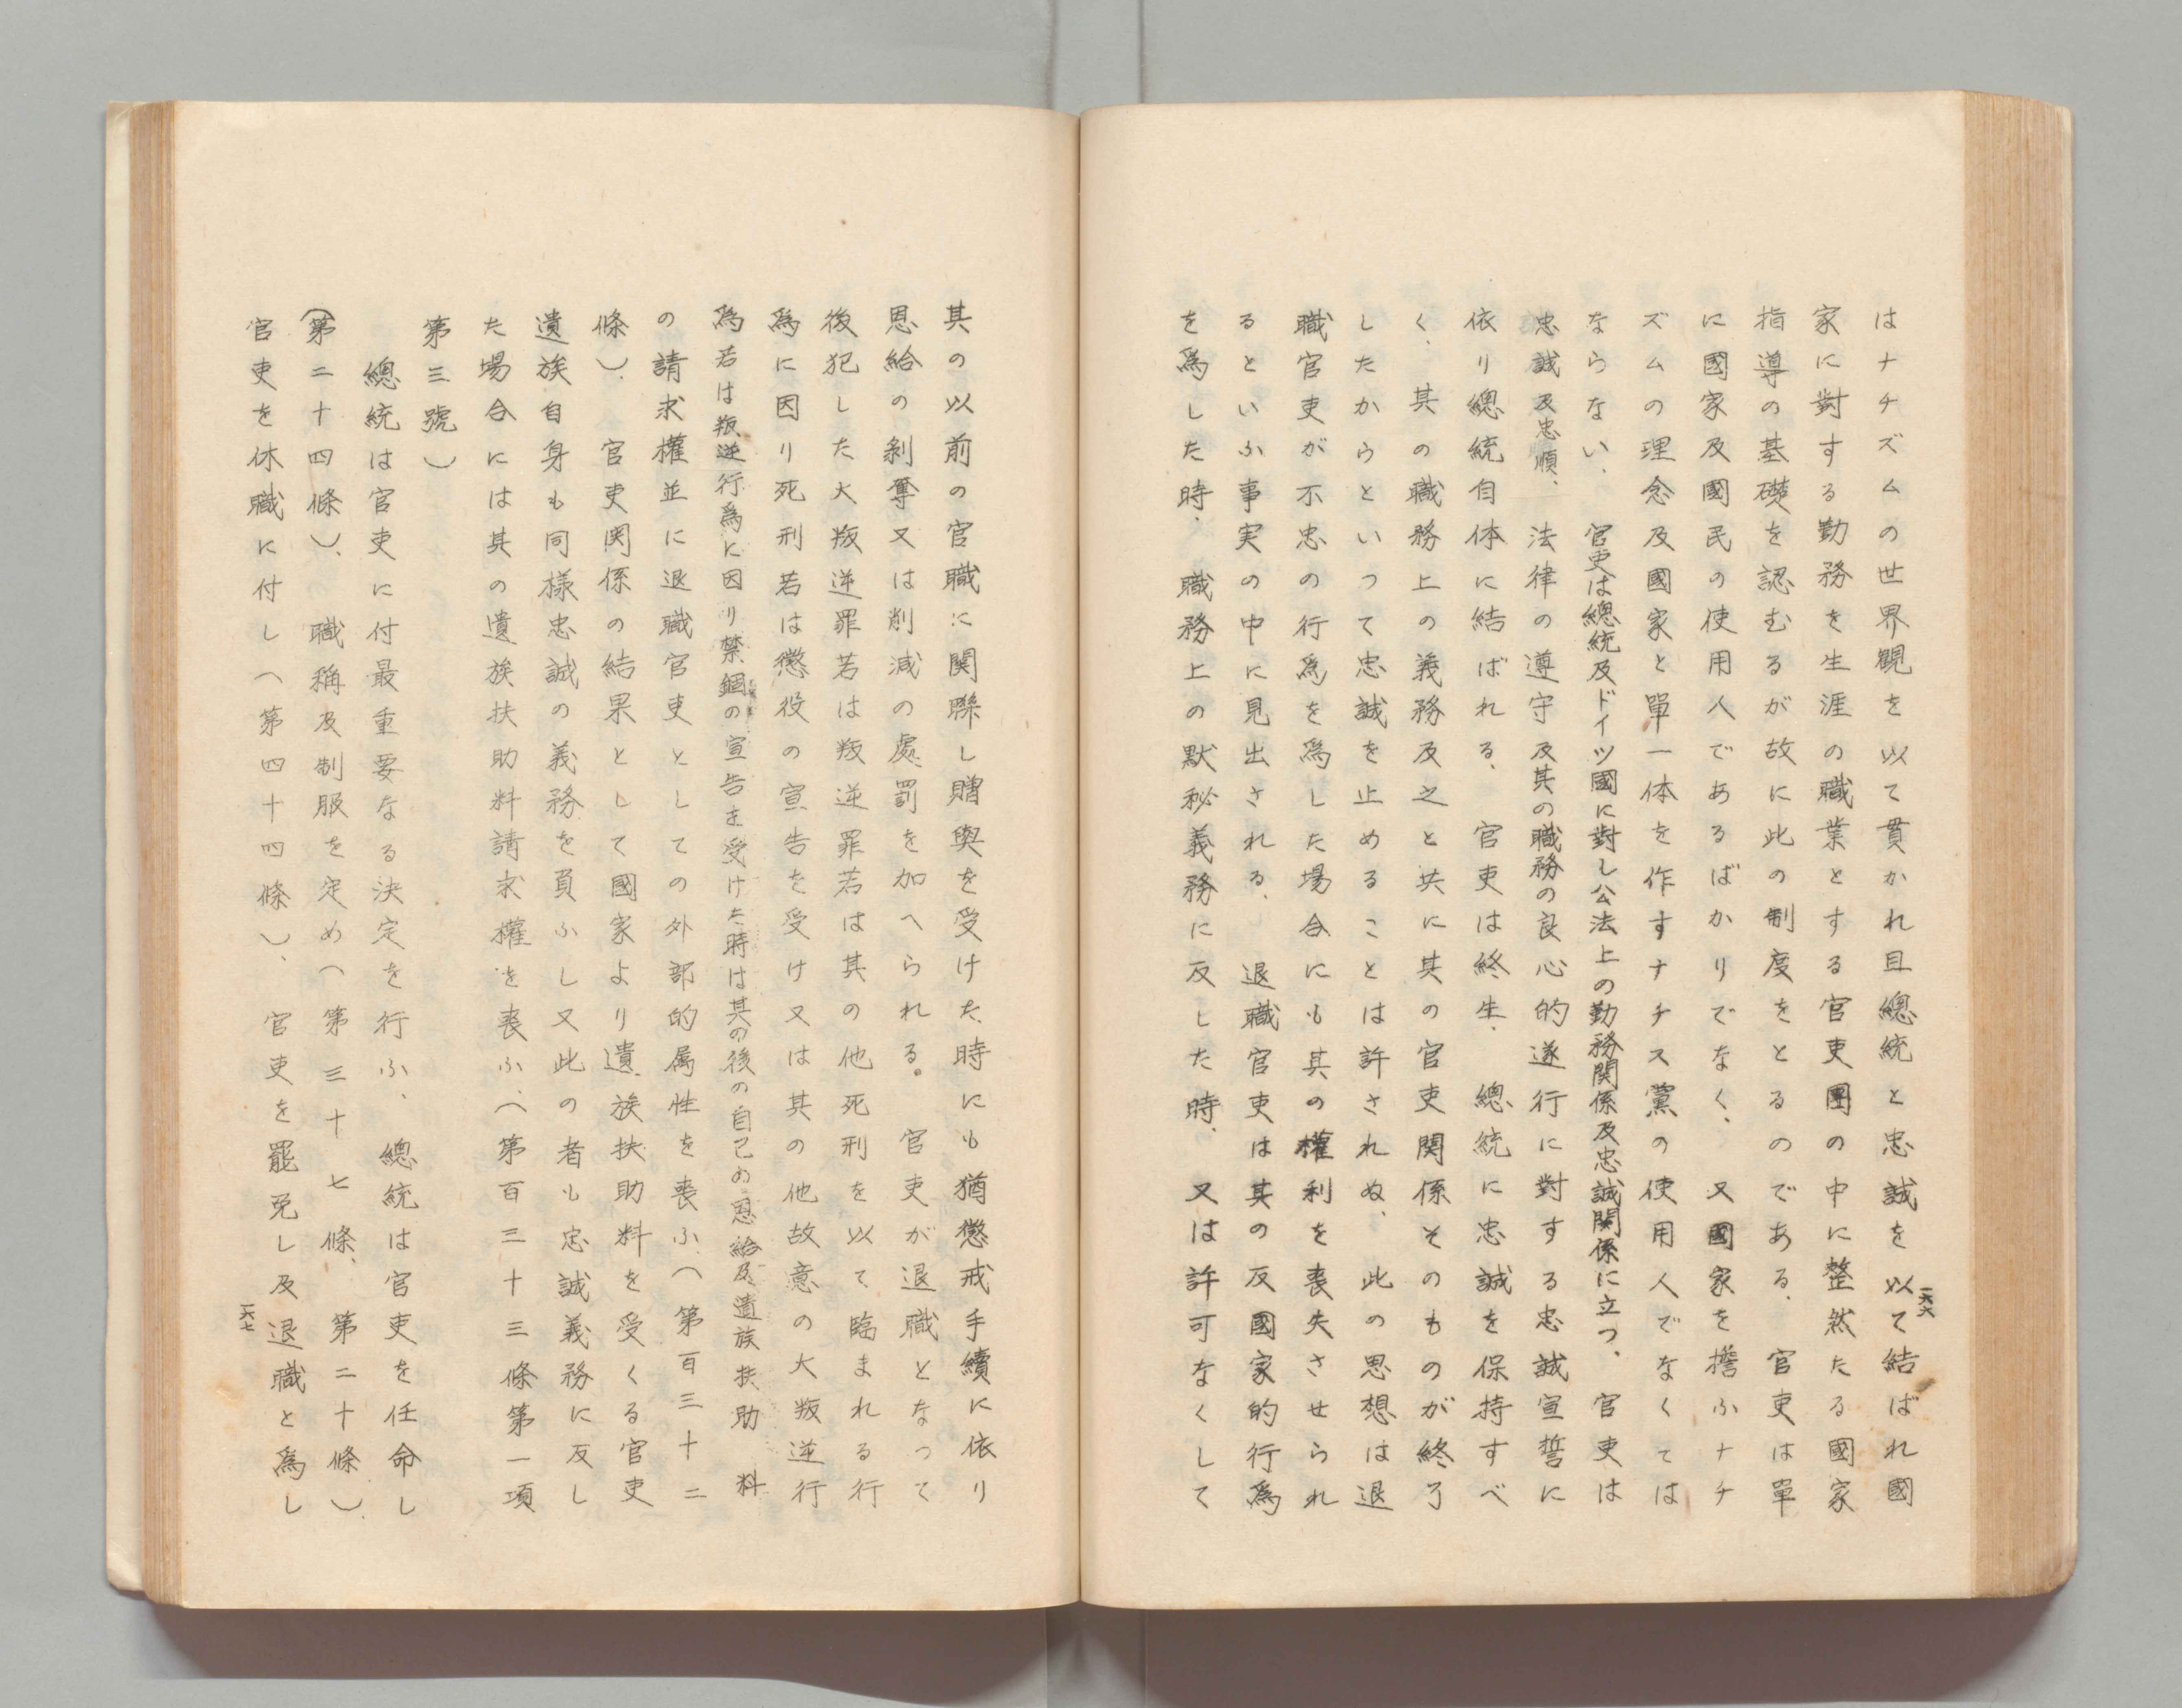 はナチズムの世界観を以て貫かれ且總統と忠誠を以て結ばれ國
家に對する勤務を生涯の職業とする官吏團の中に整然たる國家
指導の基礎を認むるが故に此の制度をとるのである、官吏は單
に國家及國民の使用人であるばかりでなく、又國家を擔ふナチ
ズムの理念及國家と單一体を作すナチス黨の使用人でなくては
ならない、官吏は總統及ドイツ國に對し公法上の勤務関係及忠誠関係に立つ、官吏は
忠誠及忠順、法律の遵守及其の職務の良心的遂行に對する忠誠宣誓に
依り總統自体に結ばれる、官吏は終生、總統に忠誠を保持すべ
く、其の職務上の義務及之と共に其の官吏関係そのものが終了
したからといつて忠誠を止めることは許されぬ、此の思想は退
職官吏が不忠の行爲を爲した場合にも其の權利を喪失させられ
るといふ事実の中に見出される、退職官吏は其の反國家的行爲
を爲した時、職務上の默秘義務に反した時、又は許可なくして
一六六
其の以前の官職に関聯し贈與を受けた時にも猶懲戒手續に依り
恩給の剝奪又は削減の處罰を加へられる。官吏が退職となつて
後犯した大叛逆罪若は叛逆罪若は其の他死刑を以て臨まれる行
爲に因り死刑若は懲役の宣告を受け又は其の他故意の大叛逆行
爲若は叛逆行爲に因り禁錮の宣告を受けた時は其の後の自己の恩給及遺族扶助料
の請求權並に退職官吏としての外部的属性を喪ふ（第百三十二
條）、官吏関係の結果として國家より遺族扶助料を受くる官吏
遺族自身も同樣忠誠の義務を負ふし又此の者も忠誠義務に反し
た場合には其の遺族扶助料請求權を喪ふ、（第百三十三條第一項
第三號）
總統は官吏に付最重要なる決定を行ふ、總統は官吏を任命し
（第二十四條）、職稱及制服を定め（第三十七條、第二十條）
官吏を休職に付し（第四十四條）、官吏を罷免し及退職と爲し
一六七